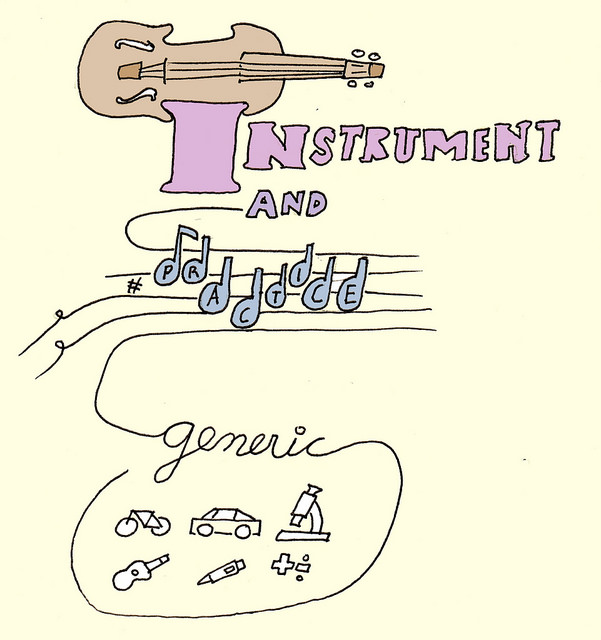 INSTRUMENT
AND
PRACTICE
generic